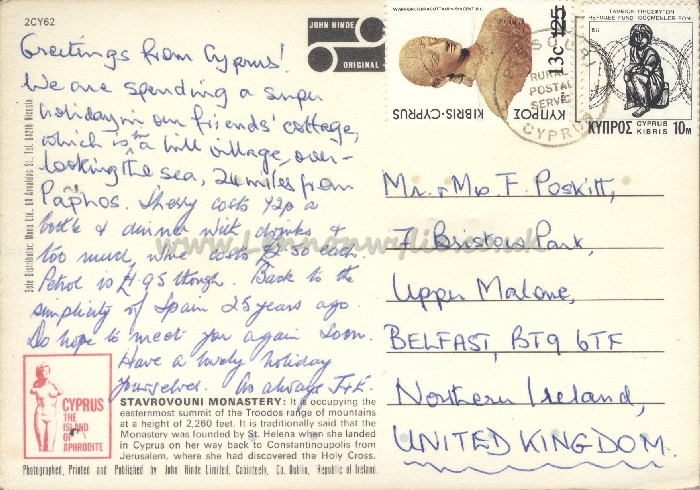 2CY62
JOHN HINDE
ORIGINAL
Greetings from Cyprus!
We are spending a super
holiday in our friends' cottage,
which is in a hill village, over-
looking the sea, 24 miles from
Paphos. Sherry costs 72p a
bottle & dinner with drinks &
too much wine costs £2.50 each.
Petrol is £1.95 though. Back to the
simplicity of Spain 25 years ago.
Do hope to meet you again soon.
Have a lovely holiday
yourselves. As always J+K.
Sole Distributor: Mona Ltd., 60 Arnaldas St., Tel. 64290 Nicosia
CYPRUS
THE
ISLAND
OF
APHRODITE
STAVROVOUNI MONASTERY: It is occupying the
easternmost summit of the Troodos range of mountains
at a height of 2,260 feet. It is traditionally said that the
Monastery was founded by St. Helena when she landed
in Cyprus on her way back to Constantinopolis from
Jerusalem, where she had discovered the Holy Cross.
Photographed, Printed and Published by John Hinde Limited, Cabinteely, Co. Dublin, Republic of Ireland.
125
13C
KIBRIS·CYPRUS
ΚΥΠΡΟΣ
RURAL
POSTAL
SERVICE
CYPRUS
ΤΑΜΕΙΟΝ ΠΡΟΣΦΥΓΩΝ
REFUGEE FUND GÖÇMENLER FONU
ΚΥΠΡΟΣ CYPRUS KIBRIS 10M
Mr. & Mrs F. Poskitt,
7 Bristow Park,
Upper Malone,
BELFAST, BT9 6TF
Northern Ireland,
UNITED KINGDOM.